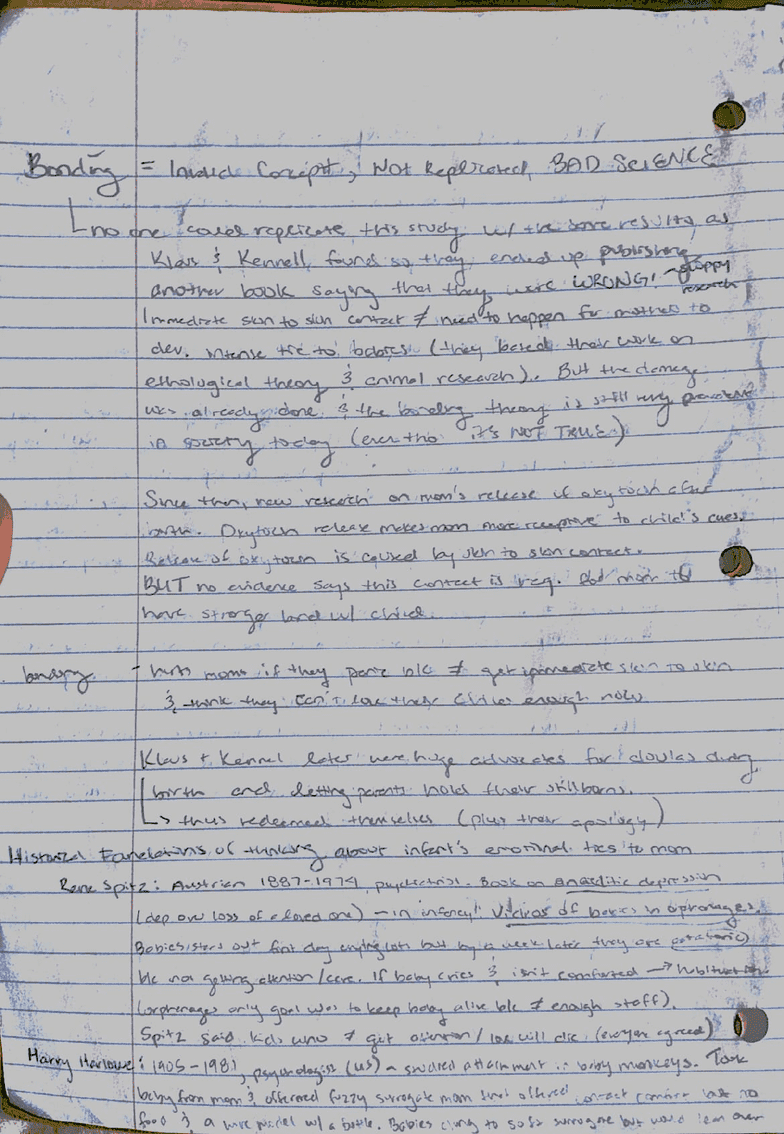 Bonding = Invalid Concept, Not Replicated, BAD SCIENCE
no one could replicate this study w/ the same results as
Klaus & Kennell found so they ended up publishing
another book saying that they were WRONG! - sloppy research
Immediate skin to skin contact ≠ need to happen for mother to
dev. intense tie to babies (they based their work on
ethological theory & animal research). But the damage
was already done & the bonding theory is still very prevalent
in society today (even tho it's NOT TRUE)
Since then, new research on mom's release of oxytocin after
birth. Oxytocin release makes mom more receptive to child's cues.
Release of oxytocin is caused by skin to skin contact.
BUT no evidence says this contact is req. for mom to
have stronger bond w/ child.
- hurts moms if they panic b/c ≠ get immediate skin to skin
& think they can't love their child enough now
Klaus + Kennel later were huge advocates for doulas during
birth and letting parents hold their stillborns.
→ thus redeemed themselves (plus their apology)
Historical Foundations of thinking about infant's emotional ties to mom
Rene Spitz: Austrian 1887-1974, psychiatrist. Book on Anaclitic depression
(dep over loss of a loved one) - in infancy. Videos of babies in orphanages.
Babies starts out first day crying lots but by a week later they are
b/c not getting attention/care. If baby cries & isn't comforted →
(orphanages only goal was to keep baby alive b/c ≠ enough staff).
Spitz said kids who ≠ get attention/love will die (everyone agreed)
Harry Harlowe: 1905-1981, psychologist (US) - studied attachment in baby monkeys. Took
baby from mom & offered fuzzy surrogate mom that offered contact comfort but no
food & a wire model w/ a bottle. Babies clung to soft surrogate but would lean over